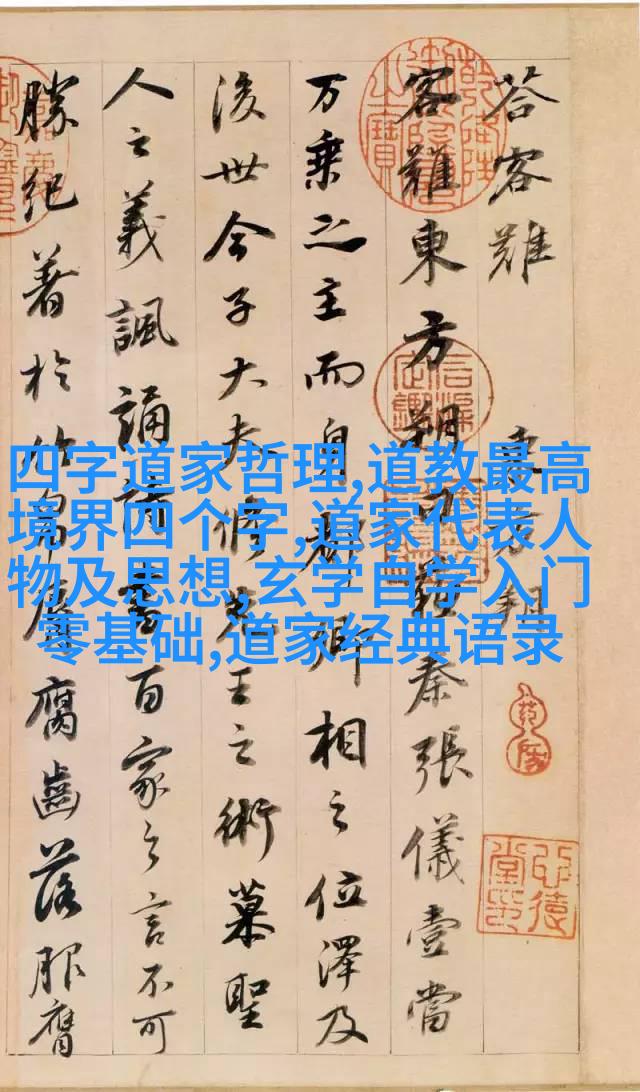 荅客難 東方朔
客難東方朔曰蘇秦張儀壹當
万乗之主而身都卿相之位澤及
後世今子大夫脩先王之術慕聖
人之義諷誦詩書百家之言不可
勝紀著於竹帛脣腐齒落服膺
四字道家哲理,道教最高
境界四个字,道家代表人
物及思想,玄学自学入门
零基础,道家经典语录